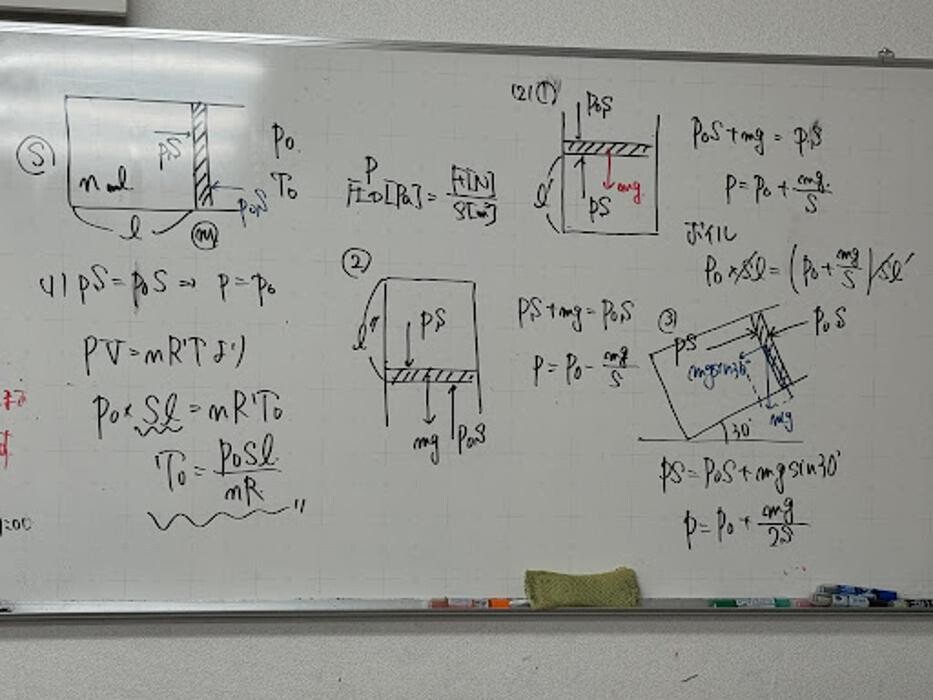 ⑤
pS
n mol
l
m
P₀
T₀
p₀S
(1) pS = p₀S ⇒ p = p₀
PV = nRT より
p₀ × Sl = nRT₀
T₀ = p₀Sl / nR 〃
P
[Pa] = F[N] / S[m²]
(2) ①
p₀S
l'
pS
mg
p₀S + mg = pS
p = p₀ + mg/S
ボイル
p₀ × Sl = (p₀ + mg/S) Sl'
②
l"
pS
mg
p₀S
pS + mg = p₀S
p = p₀ - mg/S
③
pS
p₀S
mg sin30°
mg
30°
pS = p₀S + mg sin30°
p = p₀ + mg/2S
:00